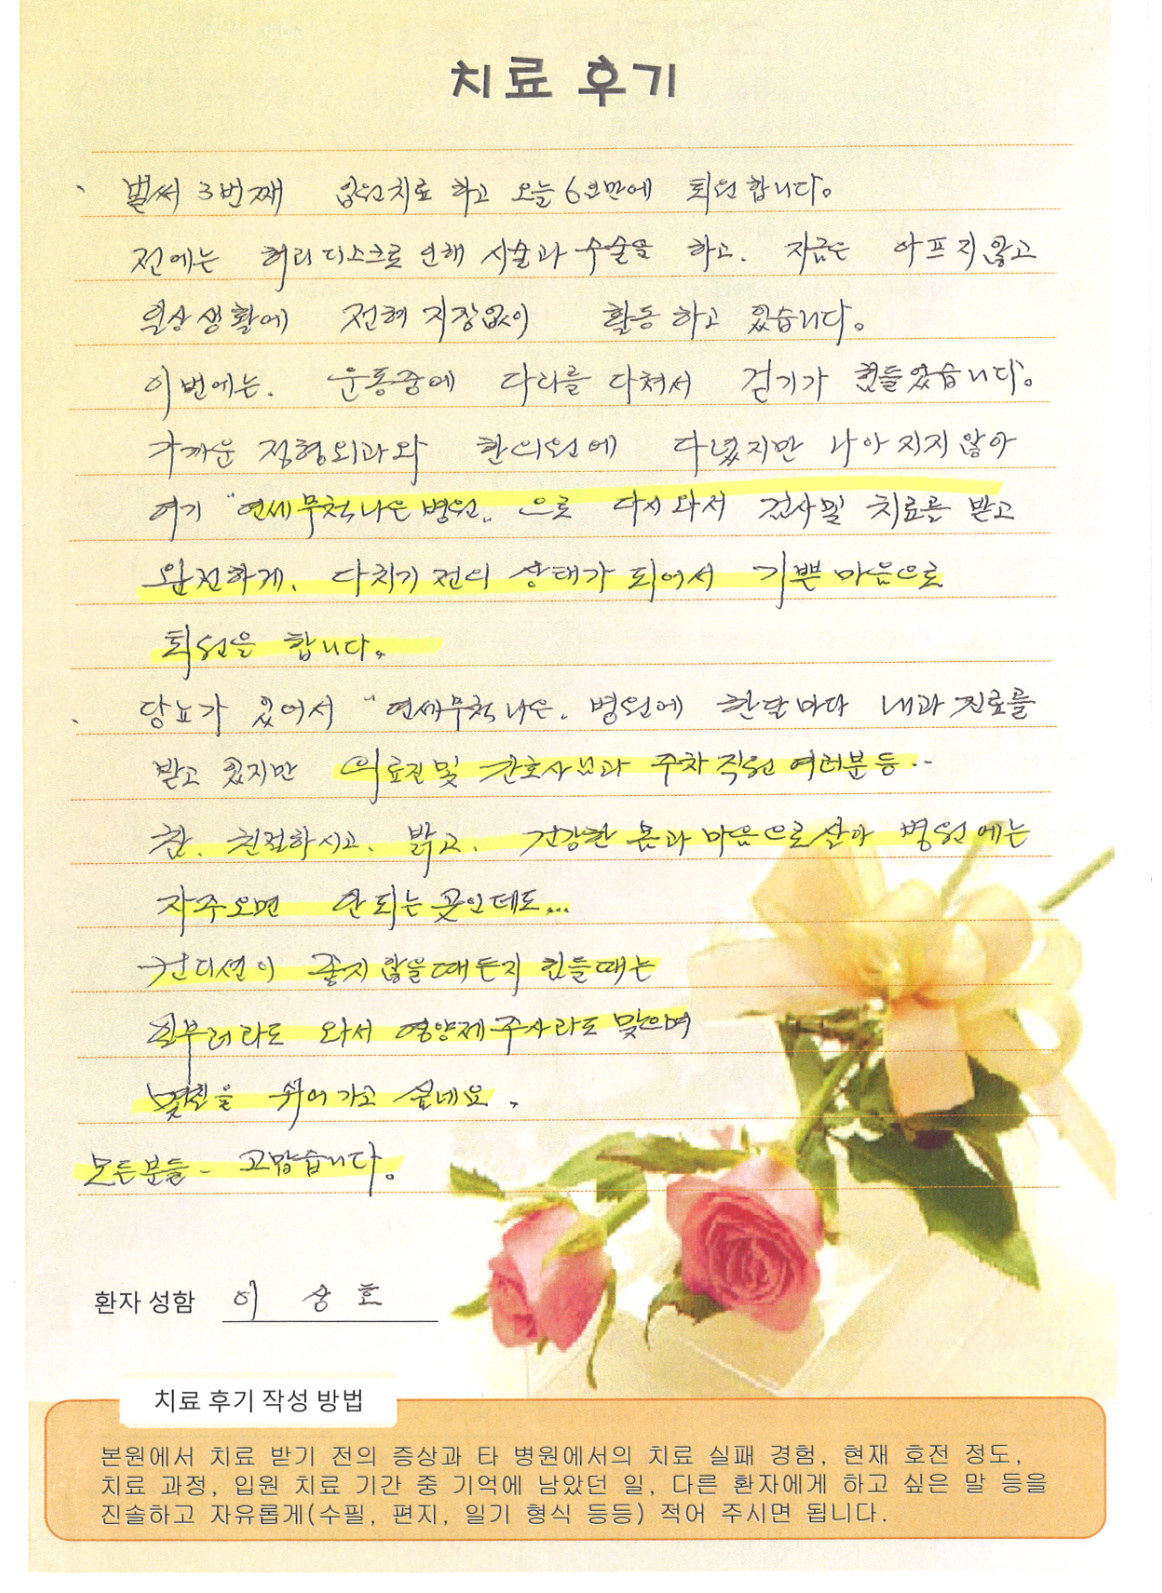 치료 후기
벌써 3번째 입원치료 하고 오늘 6일만에 퇴원합니다.
전에는 허리디스크로 인해 시술과 수술을 하고. 지금은 아프지않고
일상생활에 전혀 지장없이 활동 하고 있습니다.
이번에는. 운동중에 다리를 다쳐서 걷기가 힘들었습니다.
가까운 정형외과와 한의원에 다녔지만 나아지지 않아
여기 "연세무척나은병원" 으로 다시 와서 검사및 치료를 받고
완전하게. 다치기 전의 상태가 되어서 기쁜 마음으로
퇴원을 합니다.
당뇨가 있어서 "연세무척나은. 병원에 한달마다 내과진료를
받고 있지만 의료진및 간호사님과 주차직원 여러분등..
참. 친절하시고. 밝고. 건강한 몸과 마음으로 살아 병원에는
자주오면 안되는 곳인데도...
컨디션이 좋지 않을때든지 힘들때는
일부러라도 와서 영양제주사라도 맞으며
몇일을 쉬어가고 싶네요.
모든분들- 고맙습니다.
환자 성함 이 상 호
치료 후기 작성 방법
본원에서 치료 받기 전의 증상과 타 병원에서의 치료 실패 경험, 현재 호전 정도,
치료 과정, 입원 치료 기간 중 기억에 남았던 일, 다른 환자에게 하고 싶은 말 등을
진솔하고 자유롭게(수필, 편지, 일기 형식 등등) 적어 주시면 됩니다.